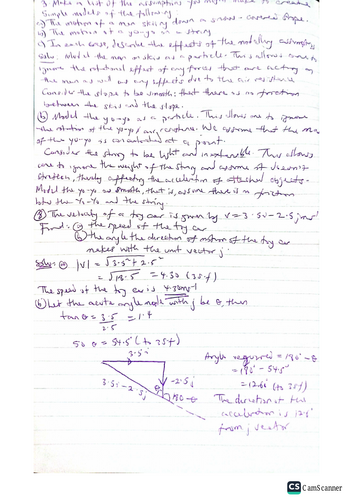 Make a list of the assumptions you might make to create
Simple models of the following
a) The motion of a man skiing down a snow-covered slope.
b) The motion of a yo-yo on a string
c) In each case, describe the effects of the modelling assumptions
Soln: Model the man on skis as a particle. This allows one to
ignore the rotational effect of any forces that are acting on
the man as well as any effects due to the air resistance
Consider the slope to be smooth; that there is no friction
between the skis and the slope.
(b) Model the yo-yo as a particle. This allows one to ignore
the rotation of the yo-yo/air resistance. We assume that the mass
of the yo-yo is concentrated at a point.
Consider the string to be light and inextensible. This allows
one to ignore the weight of the string and assume it doesn't
stretch, thereby affecting the acceleration of attached objects.
Model the yo-yo as smooth, that is, assume there is no friction
b/w the Yo-Yo and the string.
The velocity of a toy car is given by v = 3.5i - 2.5j ms⁻¹
Find: (a) the speed of the toy car
(b) the angle the direction of motion of the toy car
makes with the unit vector j
Soln: (a) |V| = √3.5² + 2.5²
= √18.5 = 4.30 (3sf)
The speed of the toy car is 4.30ms⁻¹
(b) Let the acute angle made with j be θ, then
tan θ = 3.5/2.5 = 1.4
so θ = 54.5° (to 3sf)
3.5i
Angle required = 180 - θ
= 180 - 54.5
= 126 (to 3sf)
3.5i - 2.5j
-2.5j
θ
180-θ
The direction of the
acceleration is 126
from j vector
CS CamScanner